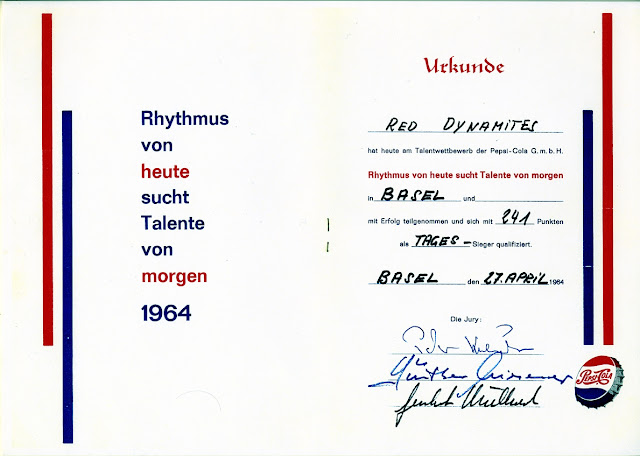 Rhythmus
von
heute
sucht
Talente
von
morgen
1964
Urkunde
RED DYNAMITES
hat heute am Talentwettbewerb der Pepsi-Cola G.m.b.H.
Rhythmus von heute sucht Talente von morgen
in BASEL und
mit Erfolg teilgenommen und sich mit 241 Punkten
als TAGES- Sieger qualifiziert.
BASEL den 27. APRIL 1964
Die Jury:
Günther
Pepsi-Cola